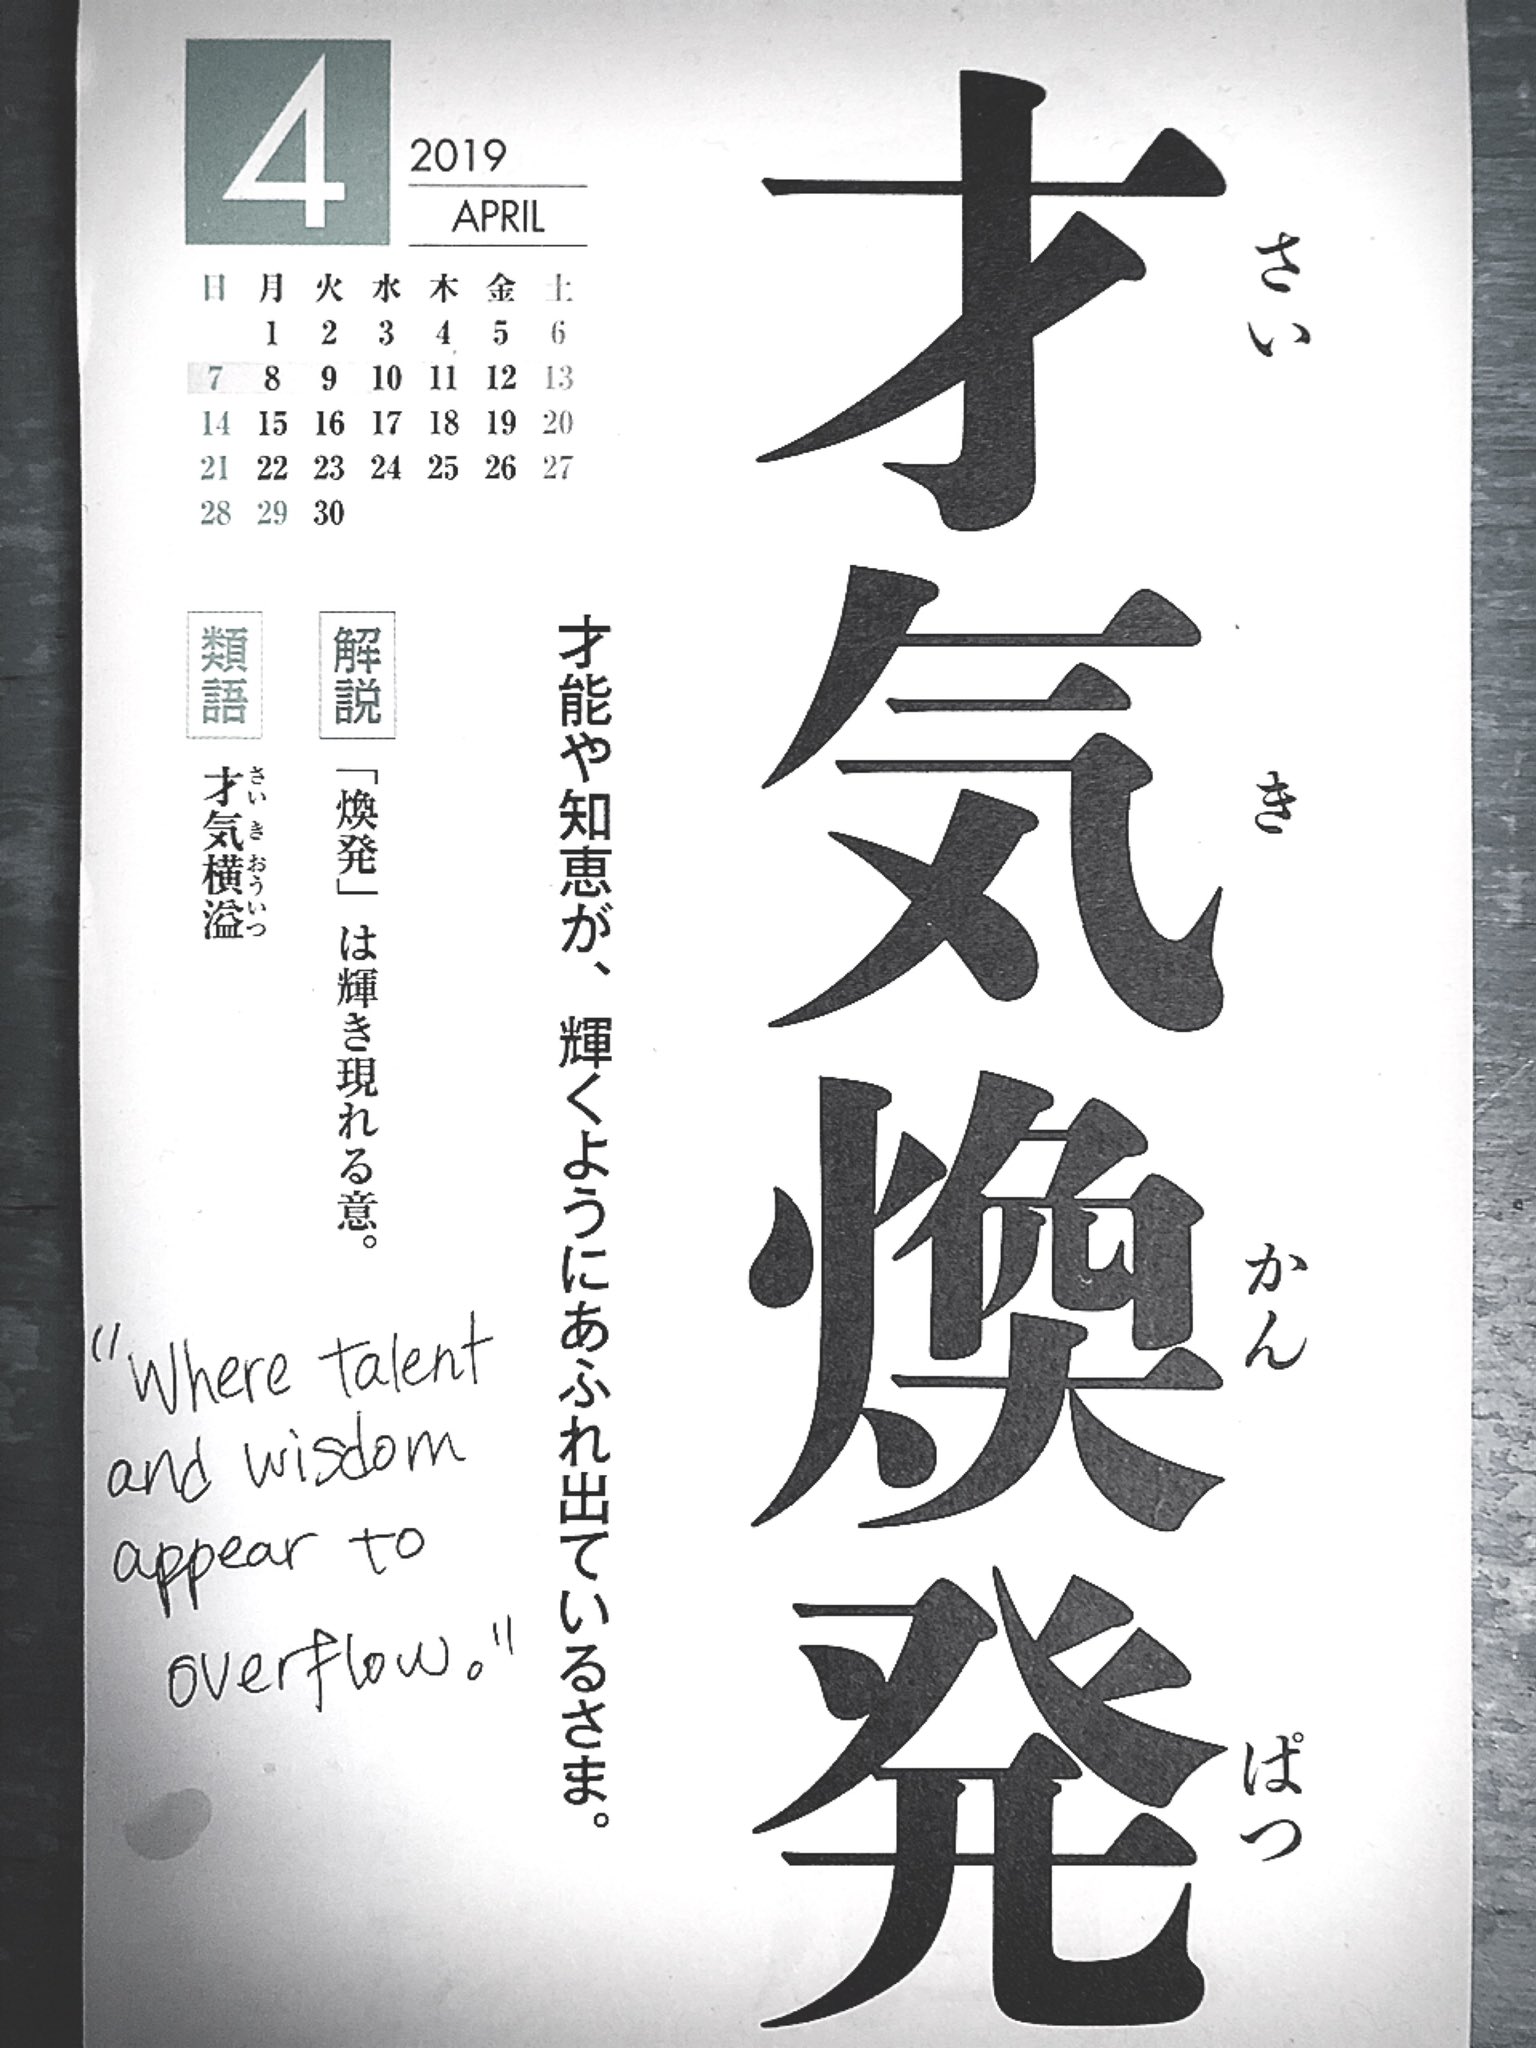 4
2019
APRIL
日 月 火 水 木 金 土
1 2 3 4 5 6
7 8 9 10 11 12 13
14 15 16 17 18 19 20
21 22 23 24 25 26 27
28 29 30
才気煥発
さい
き
かん
ぱつ
才能や知恵が、輝くようにあふれ出ているさま。
解説
「煥発」は輝き現れる意。
類語
才気横溢
さいきおういつ
"Where talent
and wisdom
appear to
overflow."